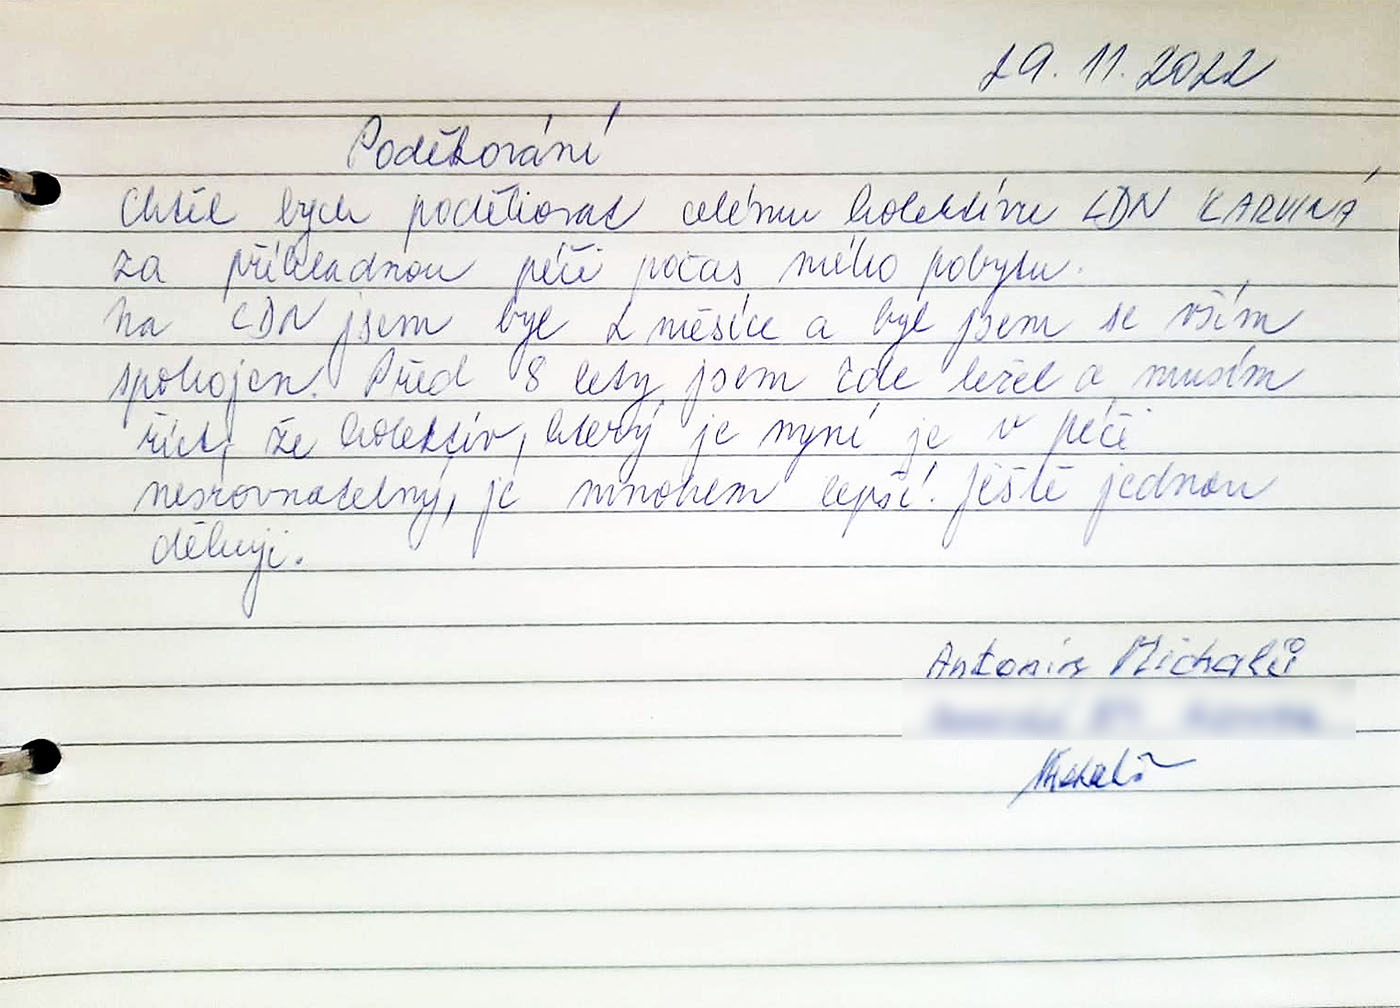 29. 11. 2022
Poděkování
Chtěl bych poděkovat celému kolektivu LDN KARVINÁ
za příkladnou péči počas mého pobytu.
Na LDN jsem byl 2 měsíce a byl jsem se vším
spokojen. Před 8 lety jsem zde ležel a musím
říct, že kolektiv, který je nyní je v péči
nesrovnatelný, je mnohem lepší. Ještě jednou
děkuji.
Antonín Michalů